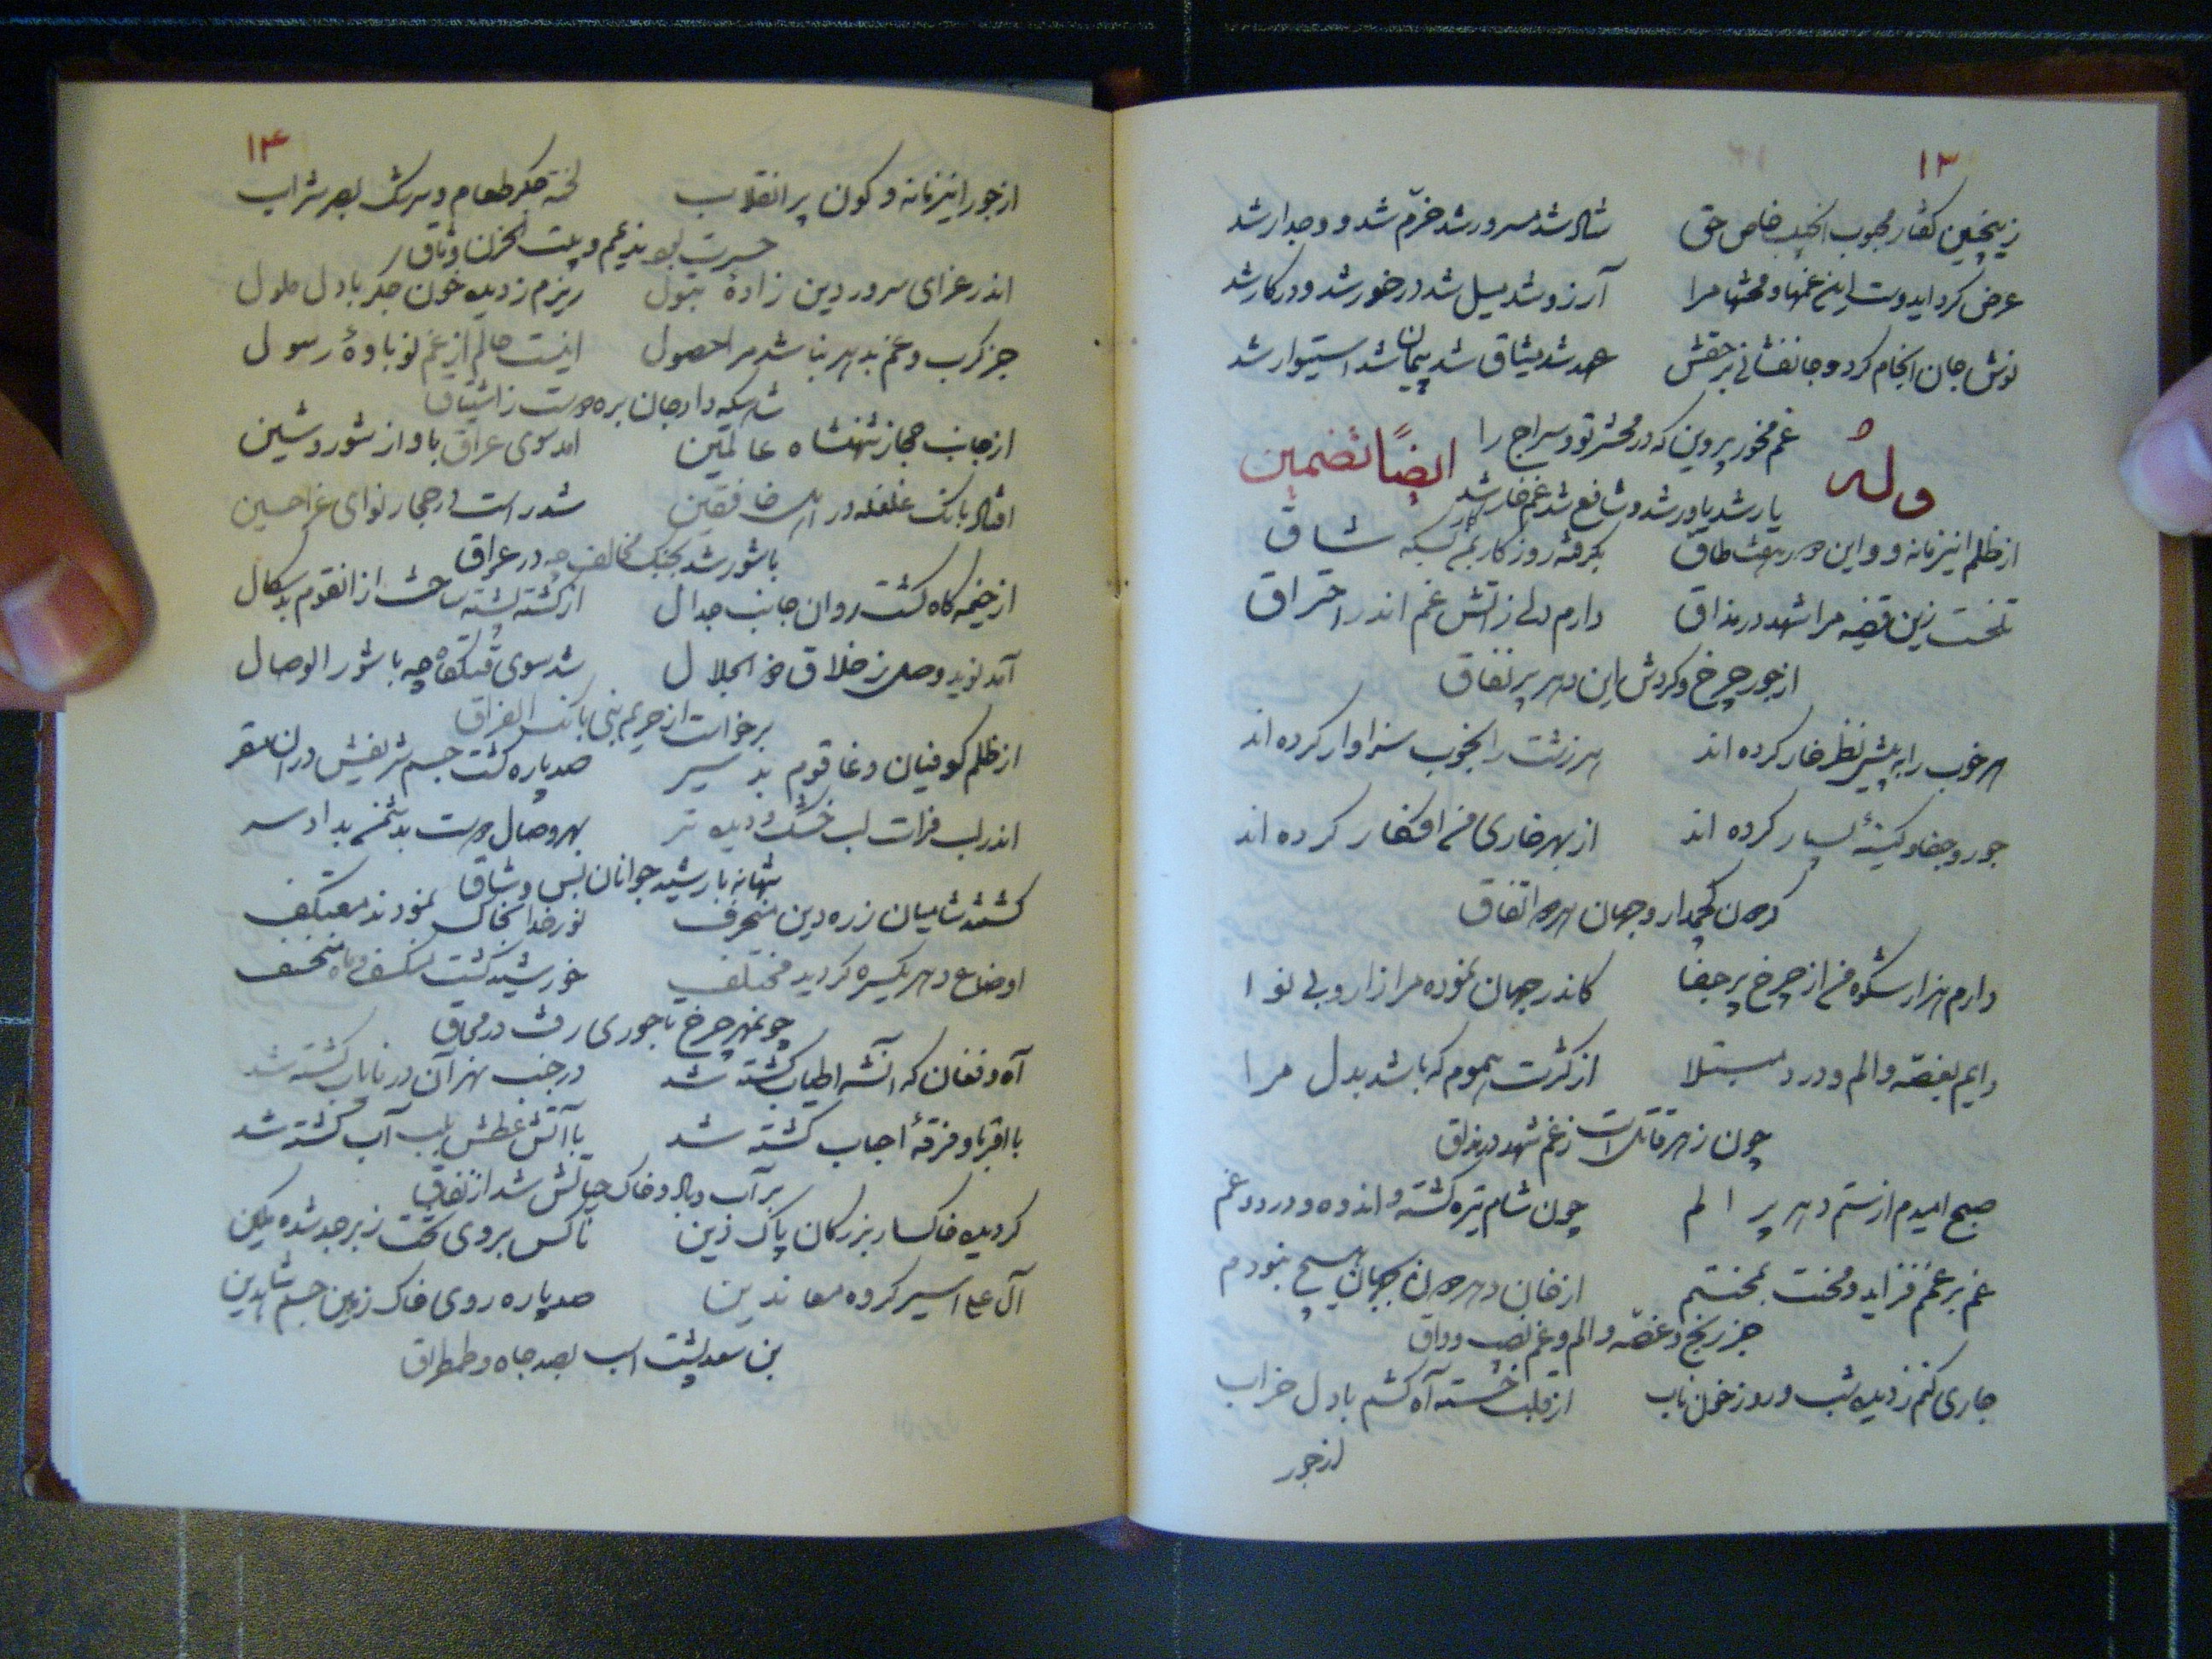 ۱۳
زینچنین گفتار محبوب الحبیب خاص حق شاد شد مسرور شد خرّم شد و وجدار شد
عرض کرد ایدوست اینغمها و محنتها مرا آرزو شد میل شد درخور شد و درکار شد
نوش جان انجام کرد و جانفشانی برحقش عهد شد میثاق شد پیمان شد استیوار شد
غم مخور پروین که در محشر تو و سراج را
یار شد یاور شد و شافع شد غمخار شد
وله ایضاً تضمین
از ظلم اینزمانه و این نهشت طاق بگرفته روزگار بمن بسکه شاق
تلخست زین قضیه مرا شهد در مذاق دارم دلی ز آتش غم اندر احتراق
از جور چرخ و گردش این دهر پر نفاق
هر خوب را به پیش نظر خار کرده اند هر زشت را بخوب سزاوار کرده اند
جور و جفا و کینهٔ بسیار کرده اند از بهر خاری من افکار کرده اند
گردون کجمدار و جهان اتفاق
دارم هزار شکوه من از چرخ پر جفا کاندر جهان نموده مرا زار و بی نوا
دایم بغصّه و الم و درد مبتلا از کثرت هموم که باشد بدل مرا
چون زهر قاتل است ز غم شهد در مذاق
صبح امیدم از ستم دهر پر الم چون شام تیره گشته و اندوه و درد و غم
غم بر غمم فزاید و محنت بمحنتم از خان دهر بجهان هیچ نبودم
جز رنج و غصّه و الم و غم نصب وداق
جاری کنم ز دیده شب و روز خون ناب از قلب خسته آه کشم با دل خراب
از جور
۱۴
از جور اینزمانه و کون پر انقلاب لخت جگر طعام و سرشک بصر شراب
حسرت بود ندیم و بیت الحزن وثاق
اندر عزای سرور دین زادهٔ بتول ریزم ز دیده خون جگر با دل ملول
جز کرب و غم بدهر نباشد مرا حصول اینست حالم از غم نوباوهٔ رسول
شاهیکه داد جان بره دوست ز اشتیاق
از جانب حجاز شهنشاه عالمین امد سوی عراق باواز شور و شین
افتاد بانک غلغله در اهل خافقین شد راست در حجاز نوای غم حسین
با شور شد بجنک مخالف چه در عراق
از خیمه گاه گشت روان جانب جدال از کشته پشته ساخت از انقوم بدسکال
آمد نوید وصل ز خلاق ذو الجلال شد سوی قتلگاه چه با شور الوصال
برخواست از حریم نبی بانک الفراق
از ظلم کوفیان دغا قوم بد سیر صد پاره گشت جسم شریفش در ان مقر
اندر لب فرات لب خشک و دیده تر بهر وصال دوست بدشمن بداد سر
تنها نه با رشید جوانان بس وشاق
گشتند شامیان ز ره دین منحرف نور خدا بخاک نمودند معتکف
اوضاع دهر یکسره گردید مختلف خورشید گشت منکسف و ماه منخسف
چونمهر چرخ تا جوری رفت در محاق
آه و فغان که انشه اطیاب کشته شد در جنب نهر آن در نایاب کشته شد
با اقربا و فرقهٔ احباب کشته شد با آتش عطش بلب آب کشته شد
بر آب و باد و خاک چه آتش شد از نفاق
گردیده خاکسار بزرگان پاک زین ناکس بروی تخت زبرجد شده مکین
آل علی اسیر گروه معاندین صد پاره روی خاک زمین جسم شاه دین
بن سعد پشت اسب بصد جاه و طمطراق